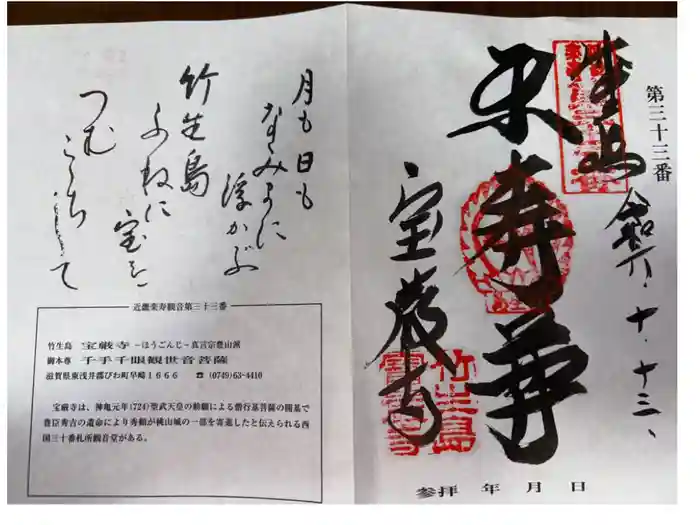 第三十三番
奉拝
令和六、十、十三、
楽寿華
宝厳寺
竹生島
寳厳寺
参拝 年 月 日
月も日も
なみまに
浮かぶ
竹生島
ふねに
宝を
つむ
こゝち
して
近畿楽寿観音第三十三番
竹生島 宝厳寺−ほうごんじ−真言宗豊山派
御本尊 千手千眼観世音菩薩
滋賀県東浅井郡びわ町早崎1666 ☎(0749)63-4410
宝厳寺は、神亀元年(724)聖武天皇の勅願による僧行基菩薩の開基で
豊臣秀吉の遺命により秀頼が桃山城の一部を寄進したと伝えられる西
国三十番札所観音堂がある。